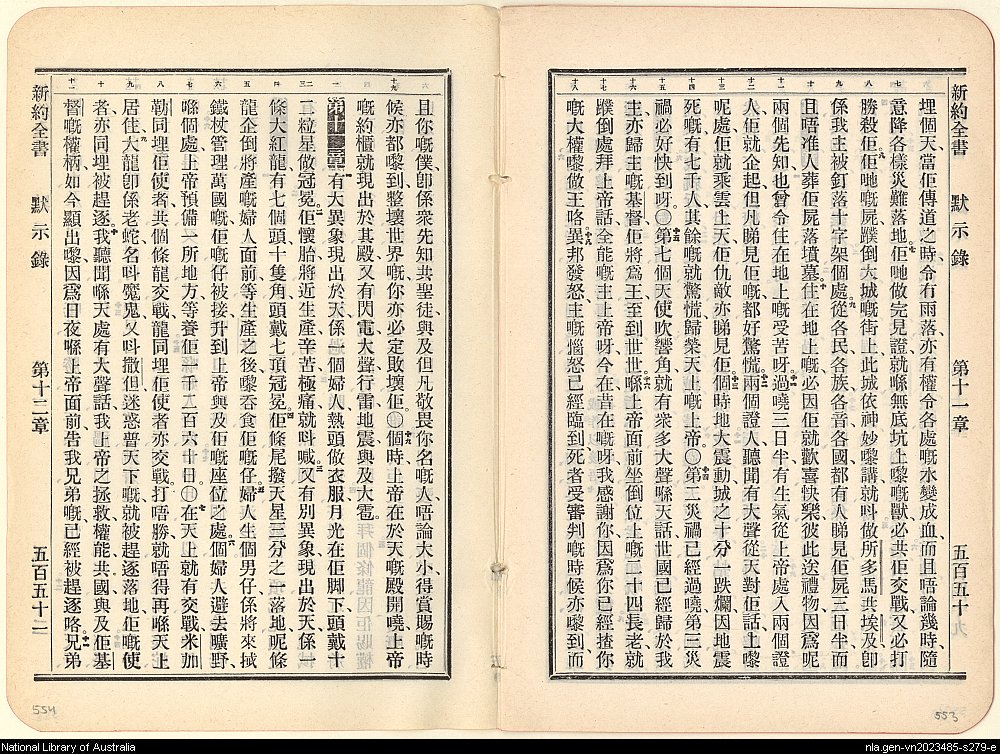 新約全書 默示錄 第十一章 五百五十九
埋個天當佢傳道之時令冇雨落亦有權令各處嘅水變成血而且唔論幾時隨
意降各樣災難落地佢哋做完見證就喺無底坑上嚟嘅獸必共佢交戰又必打
勝殺佢佢哋嘅屍躒倒大城嘅街上此城依神妙嚟講就呌做所多馬共埃及卽
係我主被釘落十字架個處從各民各族各音各國都有人睇見佢屍三日半而
且唔准人葬佢屍落墳墓住在地上嘅必因佢就歡喜快樂彼此送禮物因爲呢
兩個先知也曾令住在地上嘅受苦呀過嘵三日半有生氣從上帝處入兩個證
人佢就企起但凡睇見佢嘅都好驚慌兩個證人聽聞有大聲從天對佢話上嚟
呢處佢就乘雲上天佢仇敵亦睇見佢個時地大震動城之十分一跌爛因地震
死嘅有七千人其餘嘅就驚慌歸榮天上嘅上帝〇第二災禍已經過嘵第三災
禍必好快到呀〇第七個天使吹響角就有衆多大聲喺天話世國已經歸於我
主亦歸主嘅基督佢將爲王至到世世喺上帝面前坐倒位上嘅二十四長老就
躒倒處拜上帝話全能嘅主上帝呀今在昔在嘅呀我感謝你因爲你已經揸你
嘅大權嚟做王咯異邦發怒主嘅惱怒已經臨到死者受審判嘅時候亦嚟到而
553
且你嘅僕卽係衆先知共聖徒與及但凡敬畏你名嘅人唔論大小得賞賜嘅時
候亦都嚟到整壞世界嘅你亦必定敗壞佢〇個時上帝在於天嘅殿開嘵上帝
嘅約櫃就現出於其殿又有閃電大聲行雷地震與及大雹
第十二章 有大異象現出於天係一個婦人熱頭做衣服月光在佢脚下頭戴十
二粒星做冠冕佢懷胎將近生產辛苦極痛就呌喊又有別異象現出於天係一
條大紅龍有七個頭十隻角頭戴七頂冠冕佢條尾撥天星三分之一落地呢條
龍企倒將產嘅婦人面前等生產之後嚟吞食佢嘅仔婦人生個男仔係將來揻
鐵杖管理萬國嘅佢嘅仔被接升到上帝與及佢嘅座位之處個婦人避去曠野
喺個處上帝預備一所地方等養佢一千二百六十日〇在天上就有交戰米加
勒同埋佢使者共個條龍交戰龍同埋佢使者亦交戰打唔勝就唔得再喺天上
居住大龍卽係老蛇名呌魔鬼又呌撒但迷惑普天下嘅就被趕逐落地佢嘅使
者亦同埋被趕逐我聽聞喺天處有大聲話我上帝之拯救權能共國與及佢基
督嘅權柄如今顯出嚟因爲日夜喺上帝面前告我兄弟嘅已經被趕逐咯兄弟
新約全書 默示錄 第十二章 五百五十二
554
National Library of Australia
nla.gen-vn2023485-s279-e